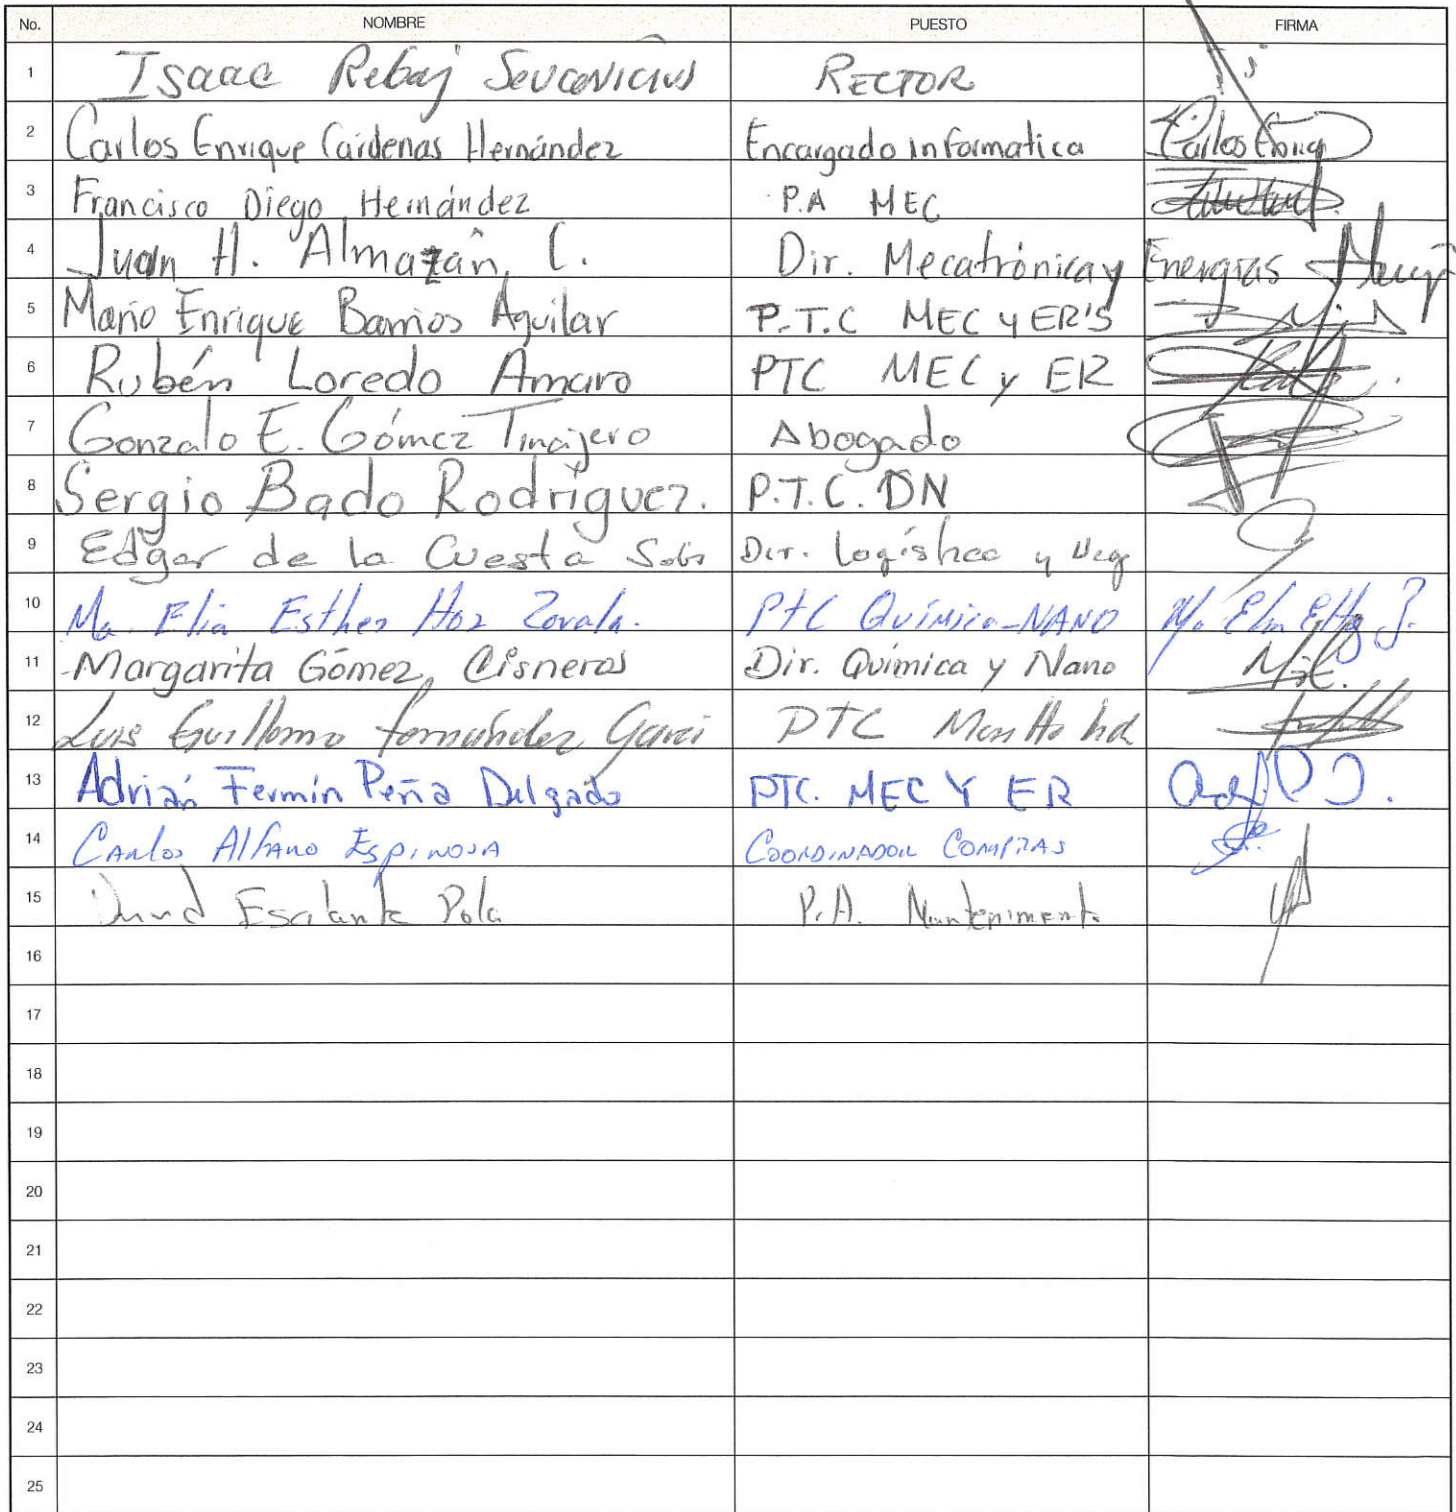 No. NOMBRE PUESTO FIRMA
1 Isaac Rebaj RECTOR
2 Carlos Enrique Cárdenas Hernández Encargado informatica Carlos Enriq
3 Francisco Diego Hernández P.A MEC
4 Juan H. Almazán C. Dir. Mecatrónica y Energías
5 Mario Enrique Barrios Aguilar P.T.C MEC y ER'S
6 Rubén Loredo Amaro PTC MEC y ER
7 Gonzalo E. Gómez Tinajero Abogado
8 Sergio Bado Rodríguez. P.T.C. DN
9 Edgar de la Cuesta Dir. Logística y Neg
10 Ma. Elia Esther Hoz Zavala. PtC Química-NANO
11 Margarita Gómez Cisneros Dir. Química y Nano
12 Luis Guillermo PTC
13 Adrián Fermín Peña Delgado PTC. MEC Y ER
14 CARLOS AlfARO EspiNOSA COORDINADOR COMPRAS
15 David Escalante Pola P.A. Mantenimiento
16
17
18
19
20
21
22
23
24
25